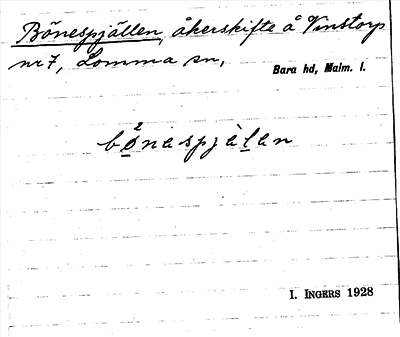 Bönespjällen, åkerskifte å Vinstorp
nr 7, Lomma sn,
Bara hd, Malm. l.
bø²naspjàlan
I. INGERS 1928